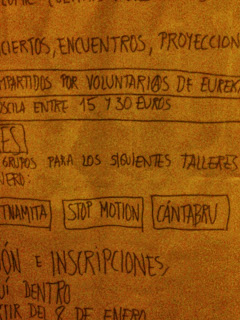 CIERTOS, ENCUENTROS, PROYECCION
MPARTIDOS POR VOLUNTARI@S DE EUREK
OSCILA ENTRE 15 Y 30 EUROS
ES
GRUPOS PARA LOS SIGUIENTES TALLERES
NERO:
TNAMITA STOP MOTION CÁNTABRU
ÓN E INSCRIPCIONES,
UÍ DENTRO
RTIR DEL 8 DE ENERO